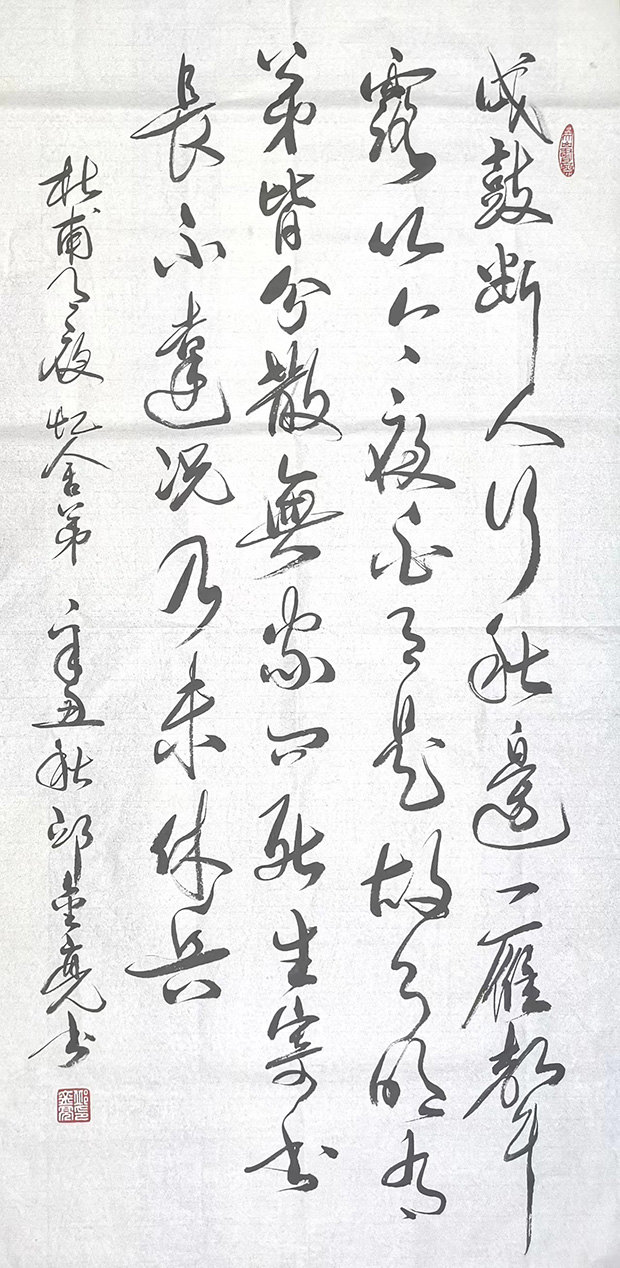 戍鼓断人行秋邊一雁聲
露從今夜白月是故鄉明有
弟皆分散無家问死生寄书
長不達况乃未休兵
杜甫月夜忆舍弟 辛丑秋邱金亮书